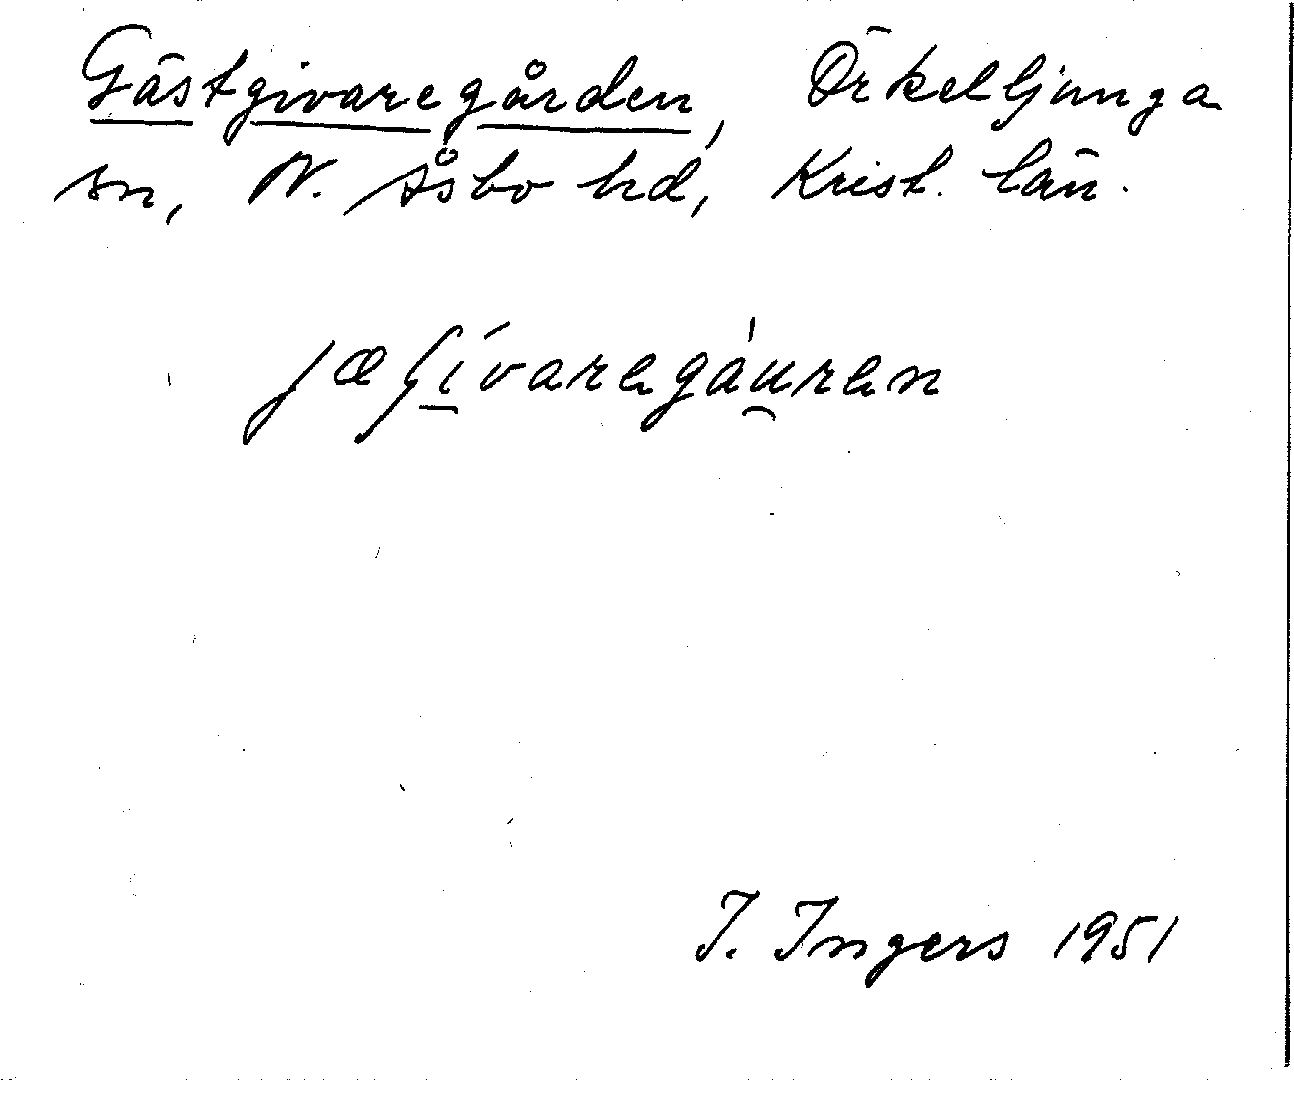 Gästgivaregården, Örkelljunga
sn, N. Åsbo hd, Krist. län.
jæʃí̠varegá̍u̯ren
I. Ingers 1951